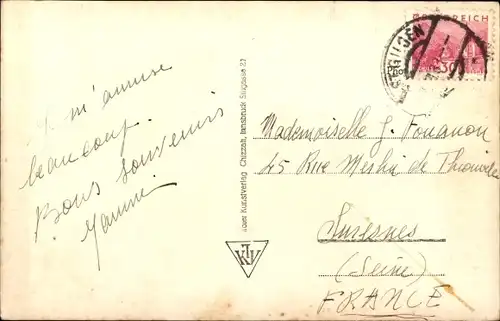 m'amuse
beaucoup.
Bons souvenirs
Kunstverlag Chizzali, Innsbruck
KTV
ÖSTERREICH
30
Mademoiselle J. Fouanon
45 Rue Merlin de Thionville
Suresnes
(Seine)
FRANCE